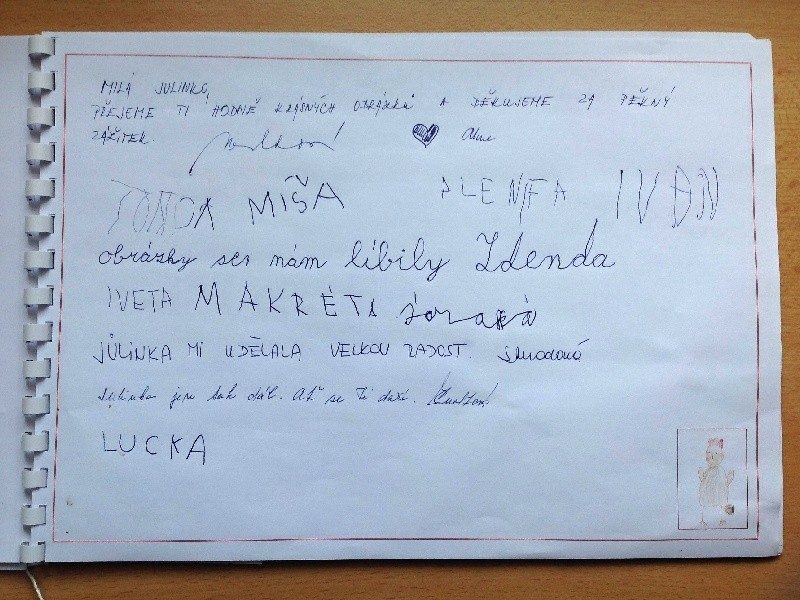 MILÁ JULINKO,
PŘEJEME TI HODNĚ KRÁSNÝCH OBRÁZKŮ A DĚKUJEME ZA PĚKNÝ
ZÁŽITEK.
TONDA MIŠA ALENKA IVAN
obrázky se nám líbily Zdenda
IVETA MAKRÉTA
JŮLINKA MI UDĚLALA VELKOU RADOST.
Julinko jen tak dál. Ať se Ti daří.
LUCKA